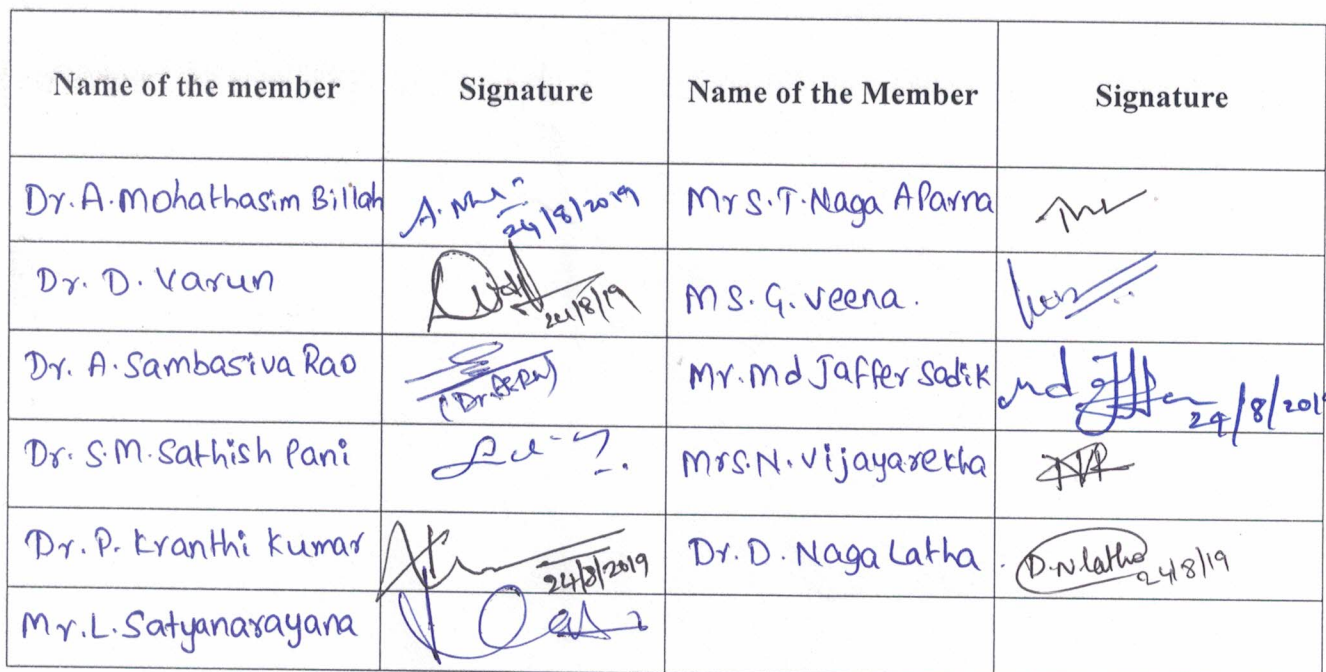 Name of the member Signature Name of the Member Signature
Dr. A. Mohathasim Billah A. 24/8/2019 Mrs. T. Naga Aparna
Dr. D. Varun 24/8/19 Ms. G. Veena.
Dr. A. Sambasiva Rao Mr. Md Jaffer Sadik Md Jaffer 24/8/2019
Dr. S. M. Sathish Pani Mrs. N. Vijayarekha
Dr. P. Kranthi Kumar 24/8/2019 Dr. D. Naga Latha D. N latha 24/8/19
Mr. L. Satyanarayana